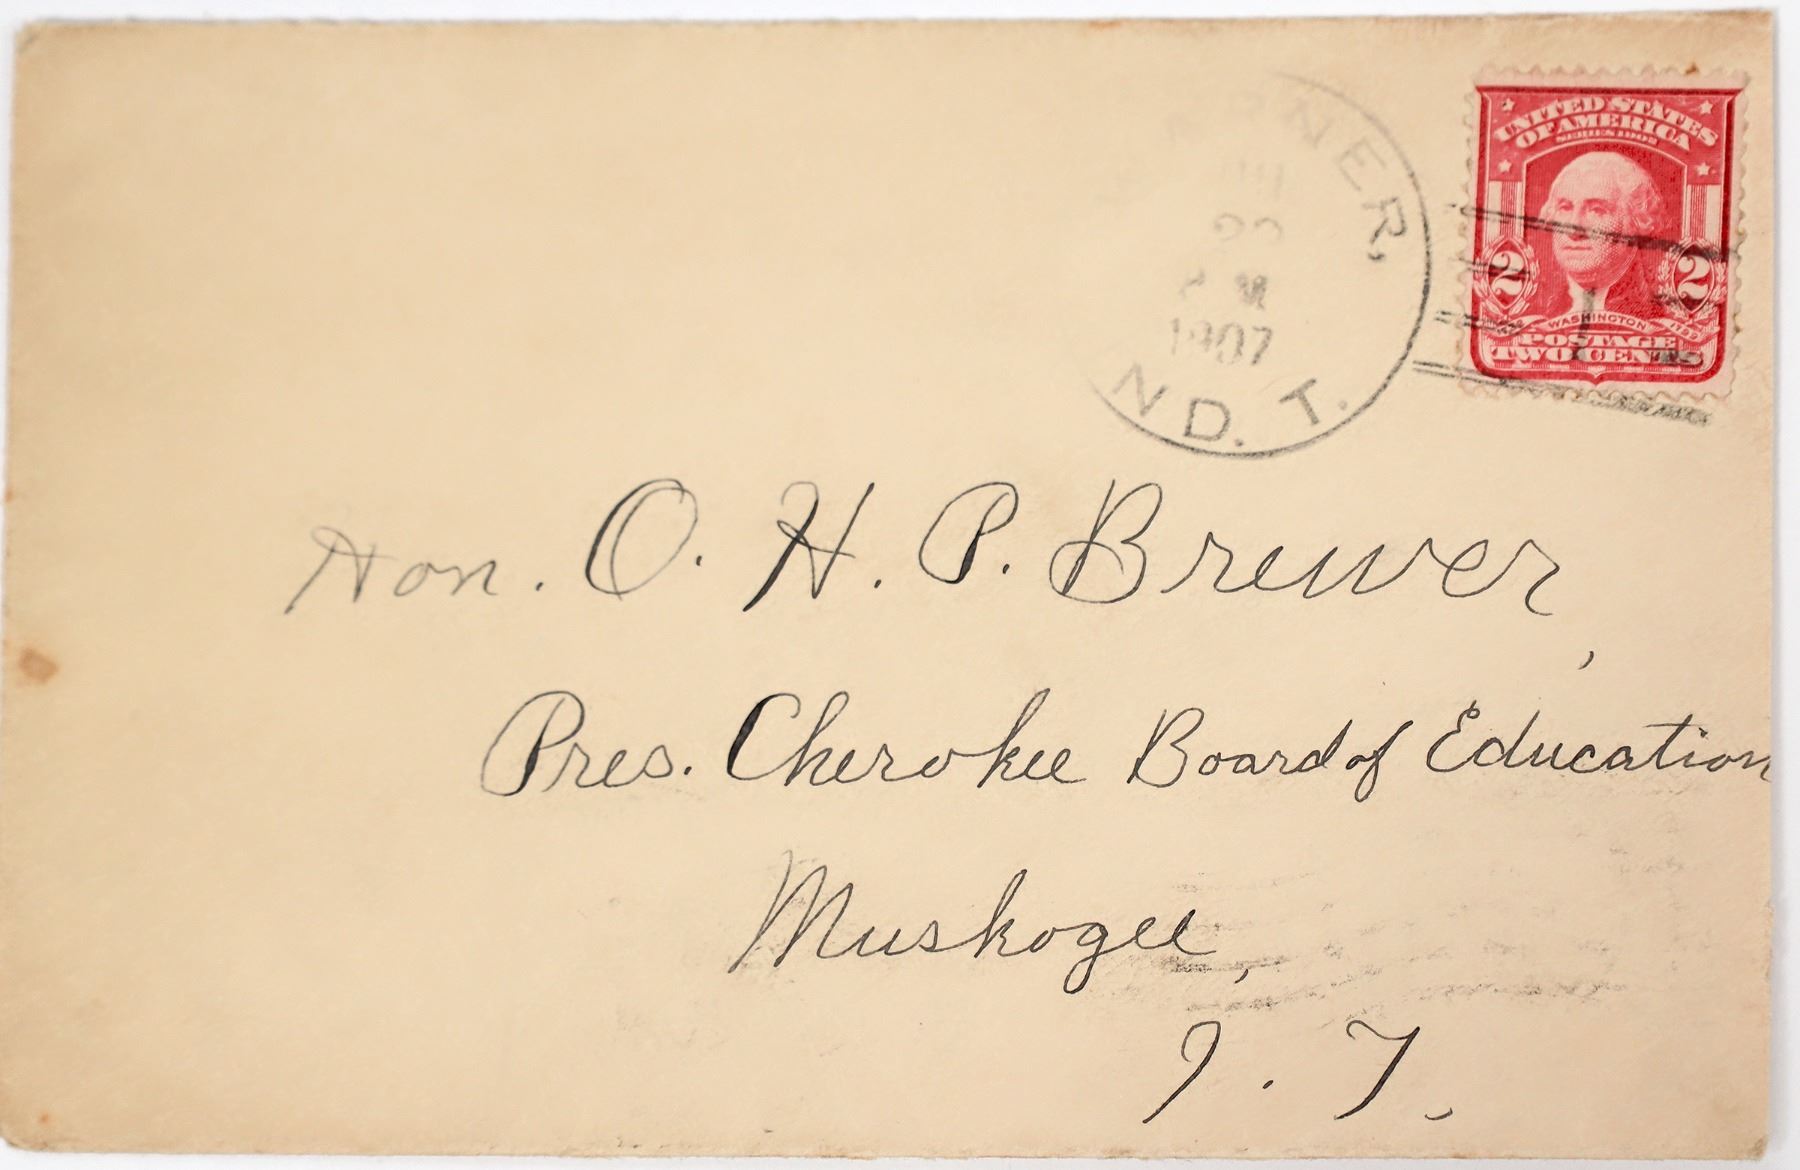 NER,
1907
ND. T.
UNITED STATES
OF AMERICA
SERIES 1902
2 2
WASHINGTON
POSTAGE
TWO CENTS
Hon. O. H. P. Brewer,
Pres. Cherokee Board of Education
Muskogee,
I. T.